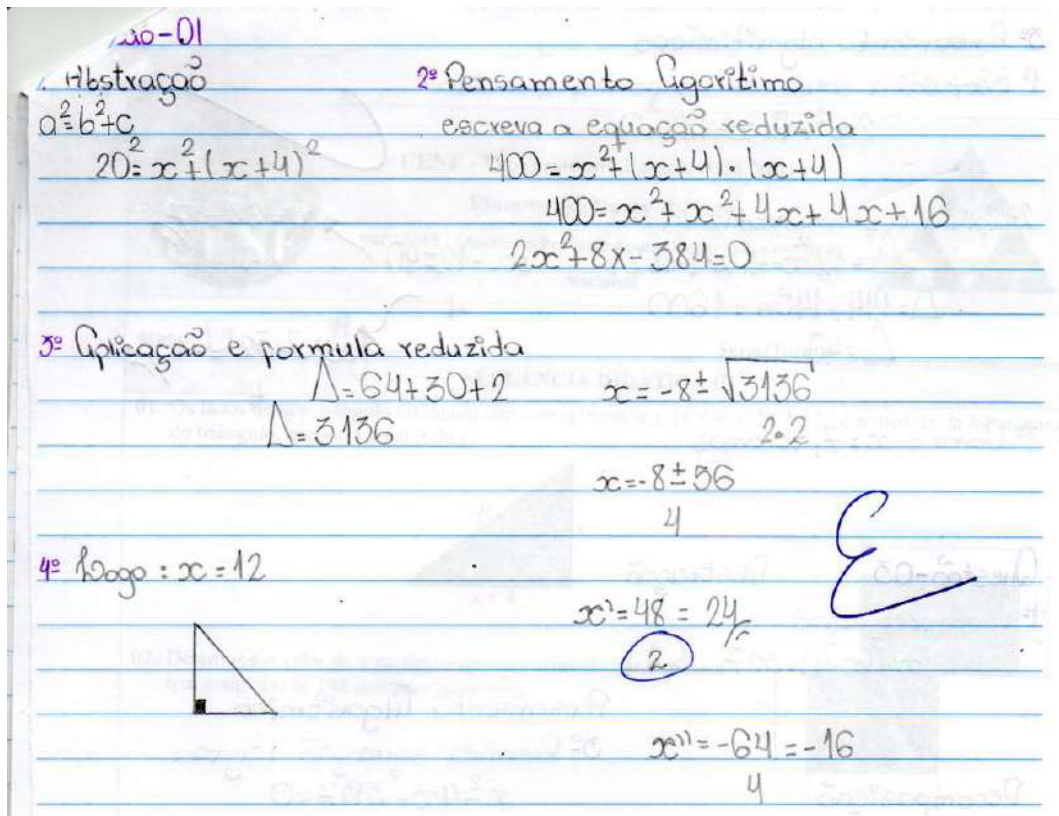 ão-01
1. Abstração
a²=b²+c
20²=x²+(x+4)²
2º Pensamento Algoritimo
escreva a equação reduzida
400=x²+(x+4)·(x+4)
400=x²+x²+4x+4x+16
2x²+8x-384=0
3º Aplicação e formula reduzida
Δ=64+30+2
Δ=3136
x=-8±√3136
2·2
x=-8±56
4
4º Logo : x=12
x'=48 = 24
2
x''=-64=-16
4